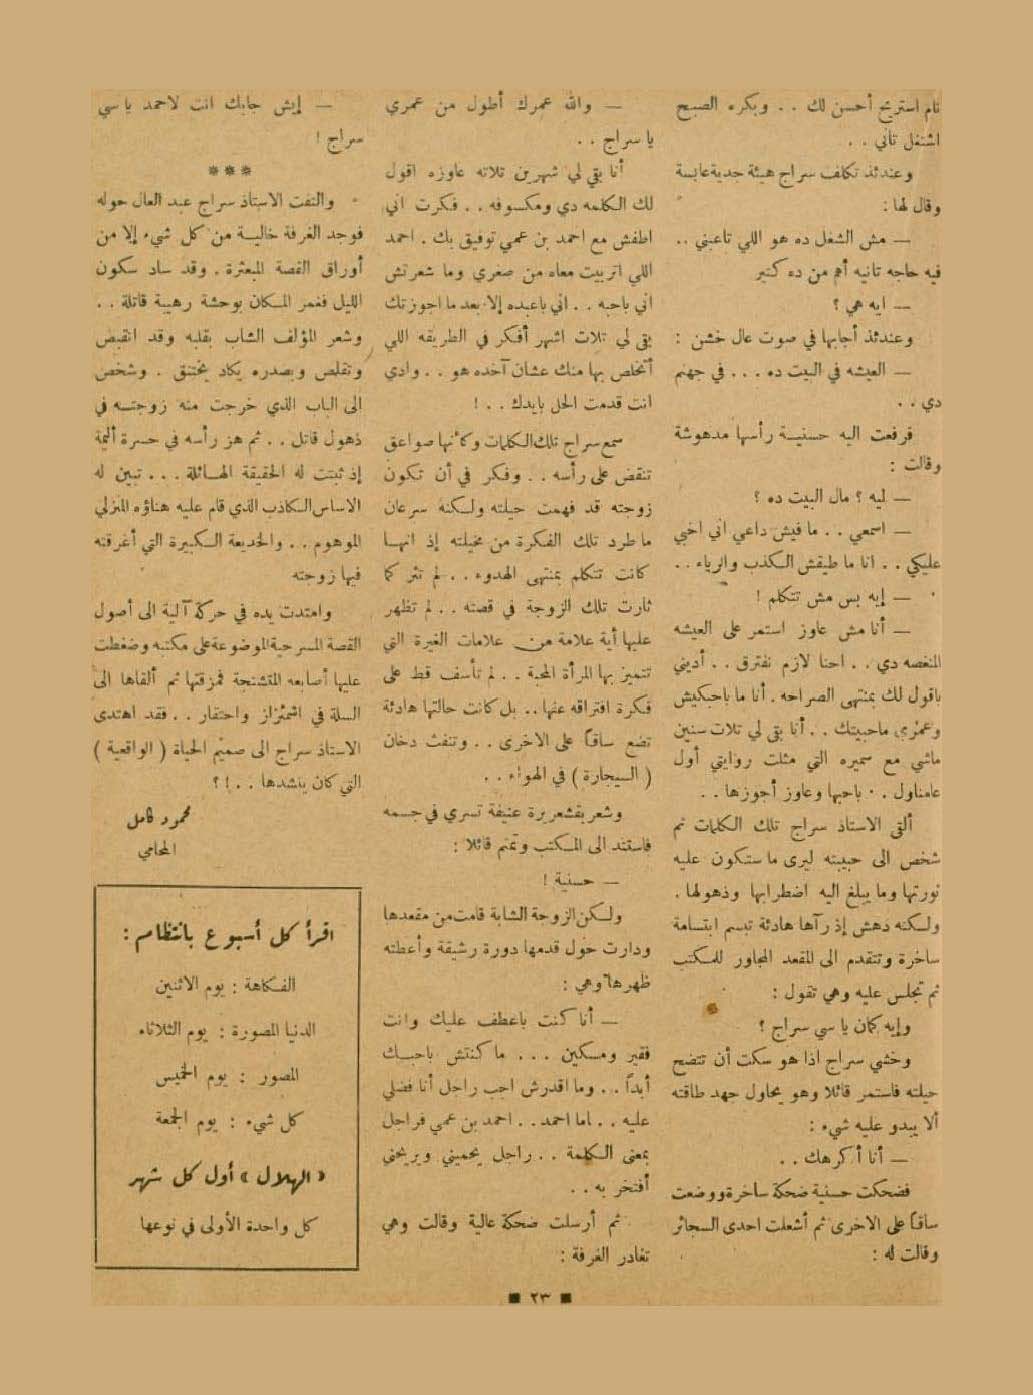 نام استريح أحسن لك . . وبكره الصبح
اشتغل تاني . .
وعندئذ تكلف سراج هيئة جدية عابسة
وقال لها :
— مش الشغل ده هو اللي تاعبني . .
فيه حاجه تانيه أهم من ده كتير
— ايه هي ؟
وعندئذ أجابها في صوت عال خشن :
— العيشه في البيت ده . . . في جهنم
دي . .
فرفعت اليه حسنية رأسها مدهوشة
وقالت :
— ليه ؟ مال البيت ده ؟
— اسمعي . . ما فيش داعي اني اخبي
عليكي . . انا ما طيقش الكذب والرياء . .
— إيه بس مش تتكلم !
— أنا مش عاوز استمر على العيشه
المنغصه دي . . احنا لازم نفترق . . أديني
باقول لك بمنتهى الصراحه . أنا ما باحبكيش
وعمري ماحبيتك . . أنا بقى لي تلات سنين
ماشي مع سميره التي مثلت روايتي أول
عامناول . . باحبها وعاوز أجوزها . .
ألقى الاستاذ سراج تلك الكلمات ثم
شخص الى حبيبته ليرى ما ستكون عليه
ثورتها وما يبلغ اليه اضطرابها وذهولها .
ولكنه دهش إذ رآها هادئة تبسم ابتسامة
ساخرة وتتقدم الى المقعد المجاور للمكتب
ثم تجلس عليه وهي تقول :
وإيه كمان يا سي سراج ؟
وخشي سراج اذا هو سكت أن تتضح
حيلته فاستمر قائلا وهو يحاول جهد طاقته
ألا يبدو عليه شيء :
— أنا أكرهك . .
فضحكت حسنية ضحكة ساخرة ووضعت
ساقاً على الاخرى ثم أشعلت احدى السجائر
وقالت له :
— والله عمرك أطول من عمري
يا سراج . .
أنا بقى لي شهرين تلاته عاوزه اقول
لك الكلمه دي ومكسوفه . . فكرت اني
اطفش مع احمد بن عمي توفيق بك . احمد
اللي اتربيت معاه من صغري وما شعرتش
اني باحبه . . اني باعبده إلا بعد ما اجوزتك
بقى لي تلات اشهر أفكر في الطريقه اللي
أتخلص بها منك عشان آخده هو . . وادي
انت قدمت الحل بايدك . . !
سمع سراج تلك الكلمات وكأنها صواعق
تنقض على رأسه . . وفكر في أن تكون
زوجته قد فهمت حيلته ولكنه سرعان
ما طرد تلك الفكرة من مخيلته إذ انها
كانت تتكلم بمنتهى الهدوء . . لم تثر كما
ثارت تلك الزوجة في قصته . . لم تظهر
عليها أية علامة من علامات الغيرة التي
تتميز بها المرأة المحبة . . لم تأسف قط على
فكرة افتراقه عنها . . بل كانت حالتها هادئة
تضع ساقاً على الاخرى . . وتنفث دخان
( السيجارة ) في الهواء . .
وشعر بقشعريرة عنيفة تسري في جسمه
فاستند الى المكتب وتمتم قائلا :
— حسنية !
ولكن الزوجة الشابة قامت من مقعدها
ودارت حول قدمها دورة رشيقة وأعطته
ظهرها وهي :
— أنا كنت باعطف عليك وانت
فقير ومسكين . . . ما كنتش باحبك
أبداً . . وما اقدرش احب راجل أنا فضلي
عليه . . اما احمد . . احمد بن عمي فراجل
بمعنى الكلمة . . راجل يحميني ويريحني
أفتخر به . .
ثم أرسلت ضحكة عالية وقالت وهي
تغادر الغرفة :
— إيش جابك انت لاحمد يا سي
سراج !
***
والتفت الاستاذ سراج عبد العال حوله
فوجد الغرفة خالية من كل شيء إلا من
أوراق القصة المبعثرة . وقد ساد سكون
الليل فغمر المكان بوحشة رهيبة قاتلة . .
وشعر المؤلف الشاب بقلبه وقد انقبض
وتقلص وبصدره يكاد يختنق . وشخص
الى الباب الذي خرجت منه زوجته في
ذهول قاتل . . ثم هز رأسه في حسرة أليمة
إذ ثبتت له الحقيقة الهائلة . . . تبين له
الاساس الكاذب الذي قام عليه هناؤه المنزلي
الموهوم . . والخديعة الكبيرة التي أغرقته
فيها زوجته
وامتدت يده في حركة آلية الى أصول
القصة المسرحية الموضوعة على مكتبه وضغطت
عليها أصابعه المتشنجة فمزقتها ثم ألقاها الى
السلة في اشمئزاز واحتقار . . فقد اهتدى
الاستاذ سراج الى صميم الحياة ( الواقعية )
التي كان ينشدها . . ! ؟
محمود كامل
المحامي
اقرأ كل أسبوع بانتظام :
الفكاهة : يوم الاثنين
الدنيا المصورة : يوم الثلاثاء
المصور : يوم الخميس
كل شيء : يوم الجمعة
« الهلال » أول كل شهر
كل واحدة الأولى في نوعها
■ ٢٣ ■